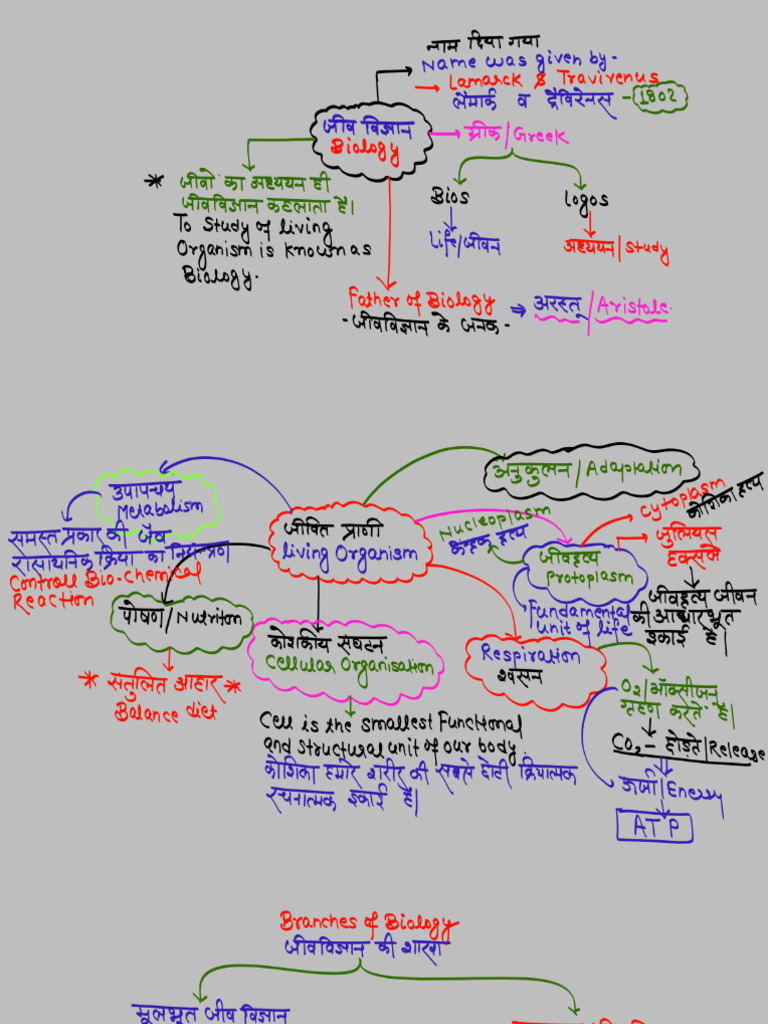 नाम दिया गया
Name was given by-
Lamarck & Travirenus
लैमार्क व ट्रैविरेनस - 1802
जीव विज्ञान
Biology
ग्रीक/Greek
* जीवो का अध्ययन ही
जीवविज्ञान कहलाता है।
To Study of living
Organism is known as
Biology.
Bios
Life/जीवन
logos
अध्ययन/Study
Father of Biology ⇒ अरस्तू/Aristole.
-जीवविज्ञान के जनक-
अनुकुलन/Adaptation
उपापचय
Metabolism
समस्त प्रकार की जैव
रासायनिक क्रिया का नियंत्रण
Controll Bio-chemical
Reaction
जीवित प्राणी
living Organism
Nucleoplasm
जीवद्रव्य
Protoplasm
Cytoplasm
कोशिका द्रव्य
जीवद्रव्य जीवन
की आधारभूत
इकाई है।
Fundamental
unit of life
पोषण/Nutriton
* सतुलित आहार *
Balance diet
कोशकीय सघटन
Cellular Organisation
Cell is the smallest Functional
and structural unit of our body.
कोशिका हमारे शरीर की सबसे छोटी क्रियात्मक
रचनात्मक इकाई है।
Respiration
श्वसन
O2/ऑक्सीजन
ग्रहण करते है।
CO2 - छोड़ते/Release
ऊर्जा/Energy
ATP
Branches of Biology
जीवविज्ञान की शाखा
मूलभूत जीव विज्ञान